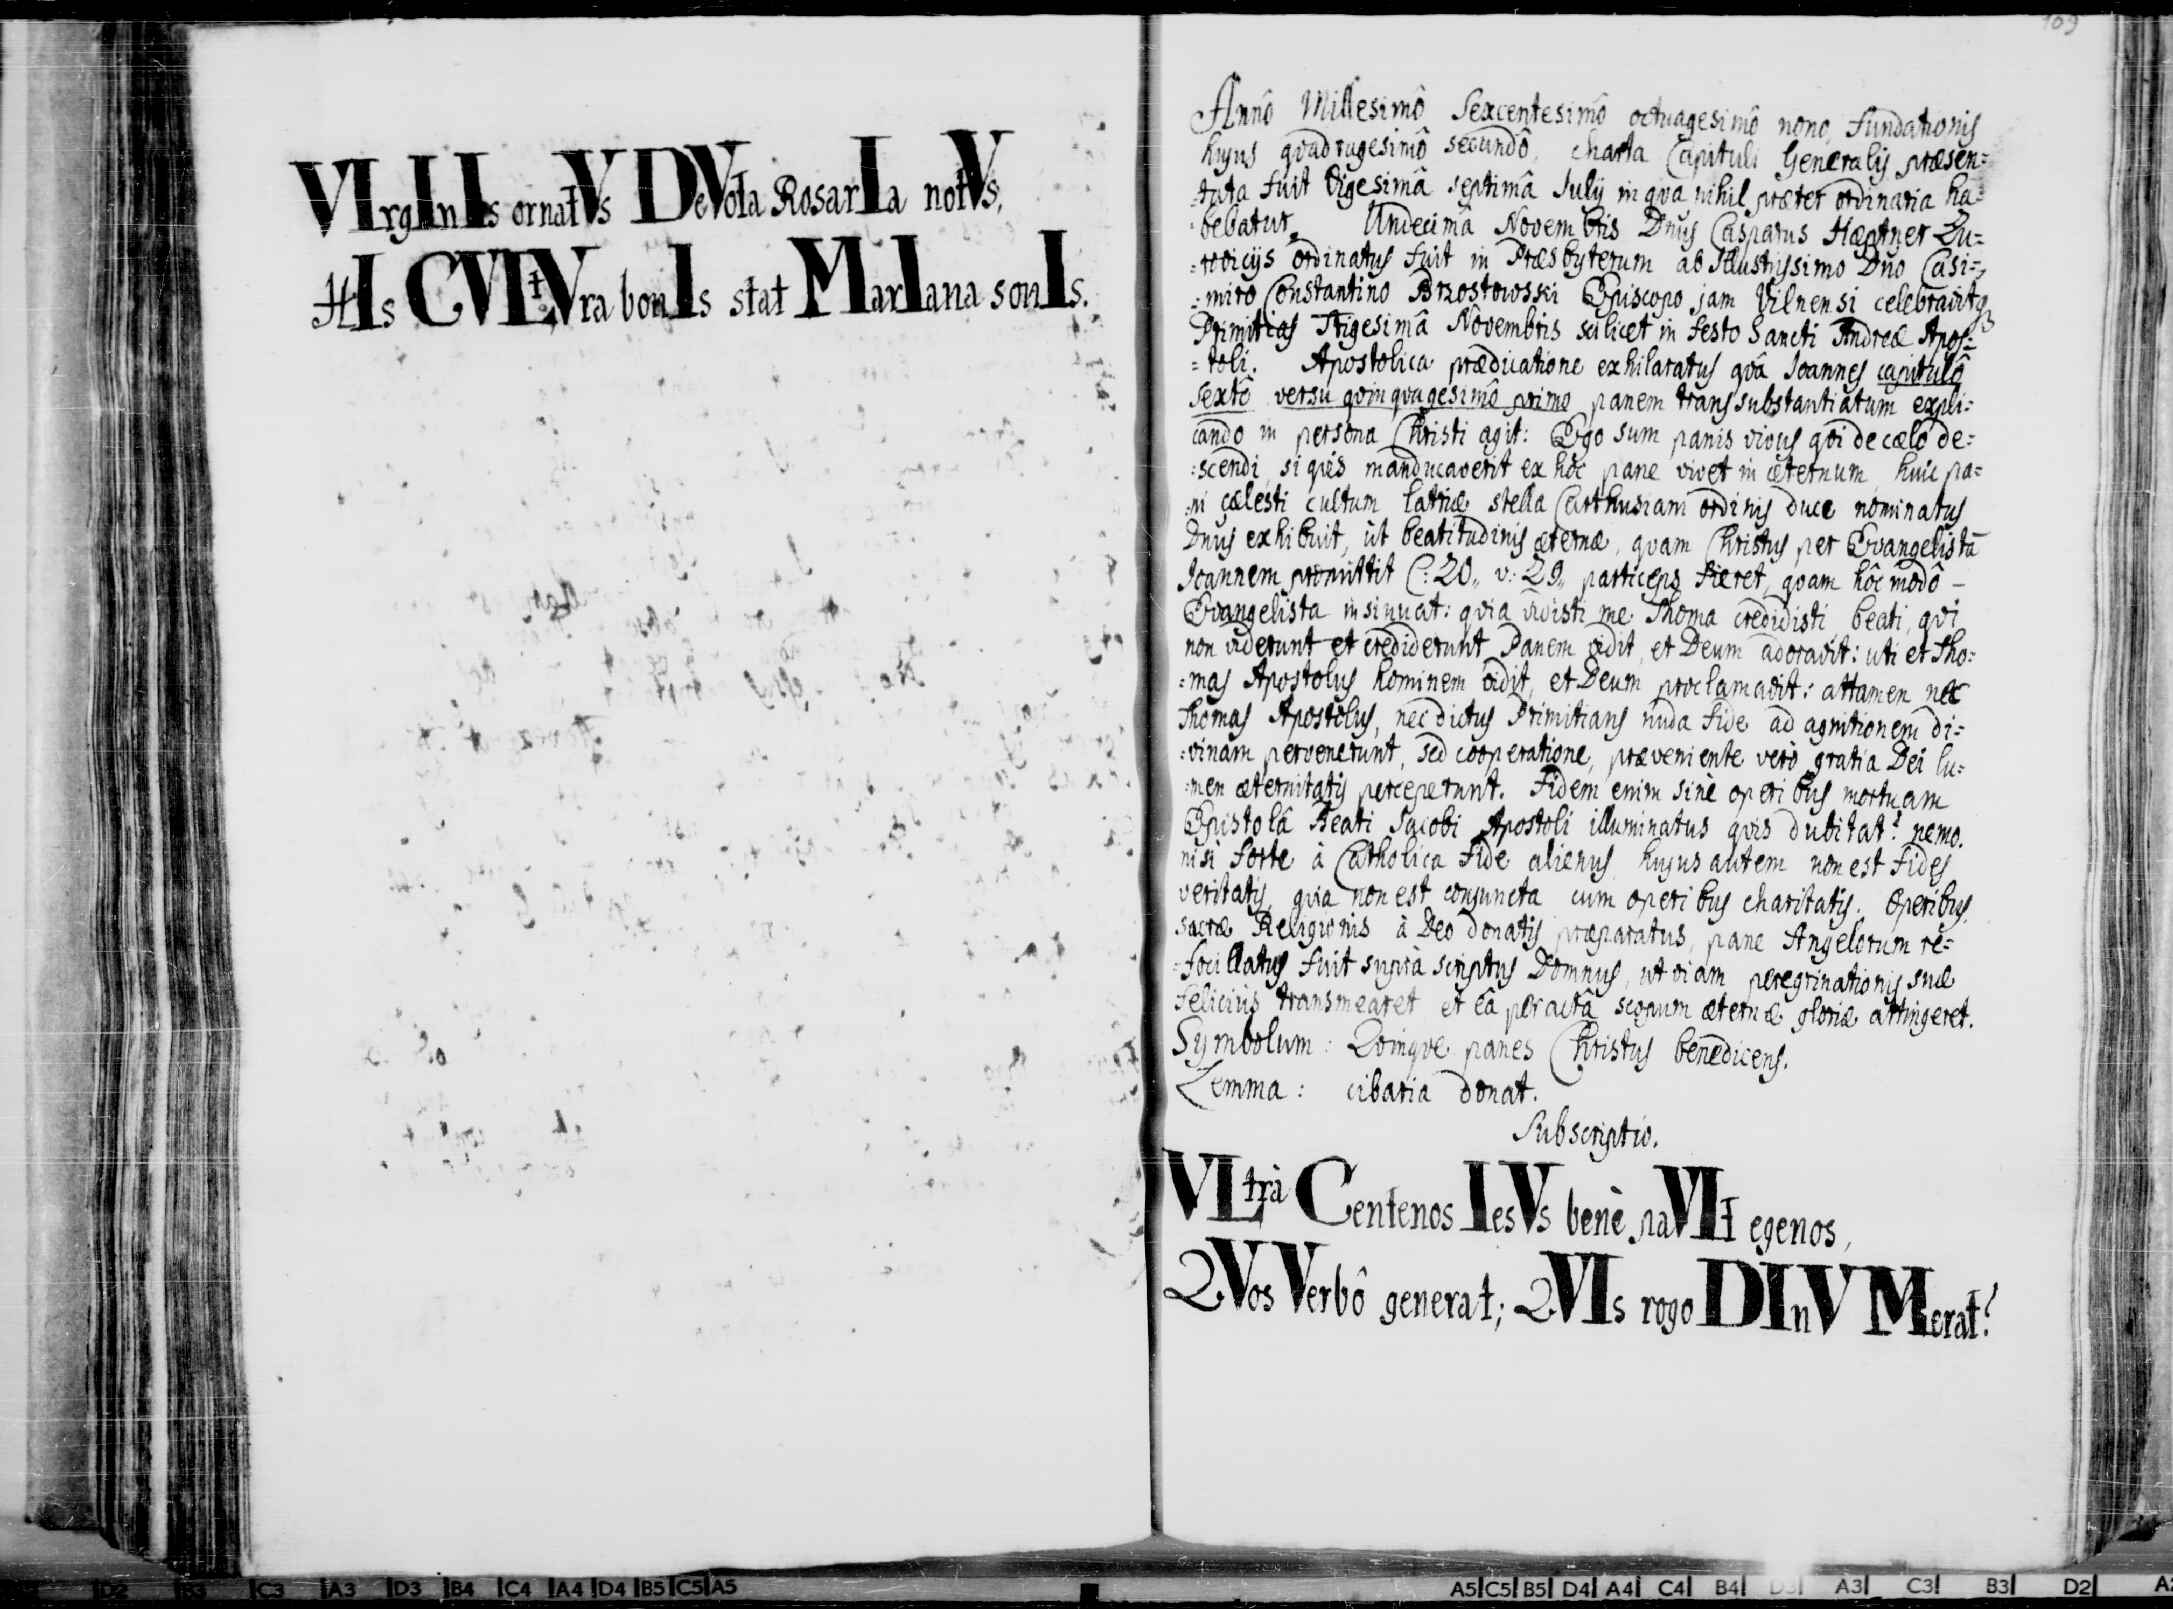 VIrgInIs ornatVs DeVota RosarIa notVs,
HIs CVLtVra bonIs stat MarIana sonIs.
109
Annô Millesimô Sexcentesimô octuagesimô nono, fundationis
hujus qvadragesimô secundô, charta Capituli Generalis præsen=
=tata fuit Vigesimâ septimâ Julij in qva nihil præter ordinaria ha=
=bebatur. Undecimâ Novembris Dnus Casparus Hæptner Lu=
=rovicijs ordinatus fuit in Præsbyterum ab Illustrissimo Dno Casi=
=miro Constantino Brzostowski Episcopo jam Vilnensi celebravitq
Primitias Trigesimâ Novembris scilicet in festo Sancti Andreæ Apos=
=toli. Apostolica prædicatione exhilaratus qvâ Joannes capitulô
sextô versu qvinqvagesimô primo panem transsubstantiatum expli=
cando in persona Christi agit: Ego sum panis vivus qvi de cælo de=
=scendi, si qvis manducaverit ex hôc pane vivet in æternum, huic pa=
=ni cælesti cultum latriæ stella Carthusiam ordinis duce nominatus
Dnus exhibuit, ut beatitudinis æternæ, qvam Christus per Evangelistã
Joannem promittit C: 20,, v: 29,, particeps fieret, qvam hôc modô –
Evangelista insinuat: qvia vidisti me Thoma credidisti beati, qvi
non viderunt et crediderunt, Panem vidit, et Deum adoravit: uti et Tho=
=mas Apostolus hominem vidit, et Deum proclamavit: attamen nec
Thomas Apostolus, nec dictus Primitians nuda fide ad agnitionem di=
=vinam pervenerunt, sed cooperatione, præveniente verò gratia Dei lu=
=men æternitatis perceperunt. Fidem enim sinè operibus mortuam
Epistolâ Beati Jacobi Apostoli illuminatus qvis dubitat? nemo.
nisi forte à Catholica fide alienus, hujus autem non est fides
veritatis, qvia non est conjuncta cum operibus charitatis. Operibus
sacræ Religionis à Deo donatis præparatus, pane Angelorum re=
=focillatus fuit suprà scriptus Domnus, ut viam peregrinationis suæ
feliciùs transmearet et eâ peractâ scopum æternæ gloriæ attingeret.
Symbolum: Qvinqve panes Christus benedicens.
Lemma: cibaria donat.
Subscriptio.
VLtrà Centenos IesVs benè paVIt egenos,
QVos Verbô generat; QVIs rogo DInVMerat?
A5 C5 B5 D4 A4 C4 B4 D3 A3 C3 B3 D2
D2 B3 C3 A3 D3 B4 C4 A4 D4 B5 C5 A5